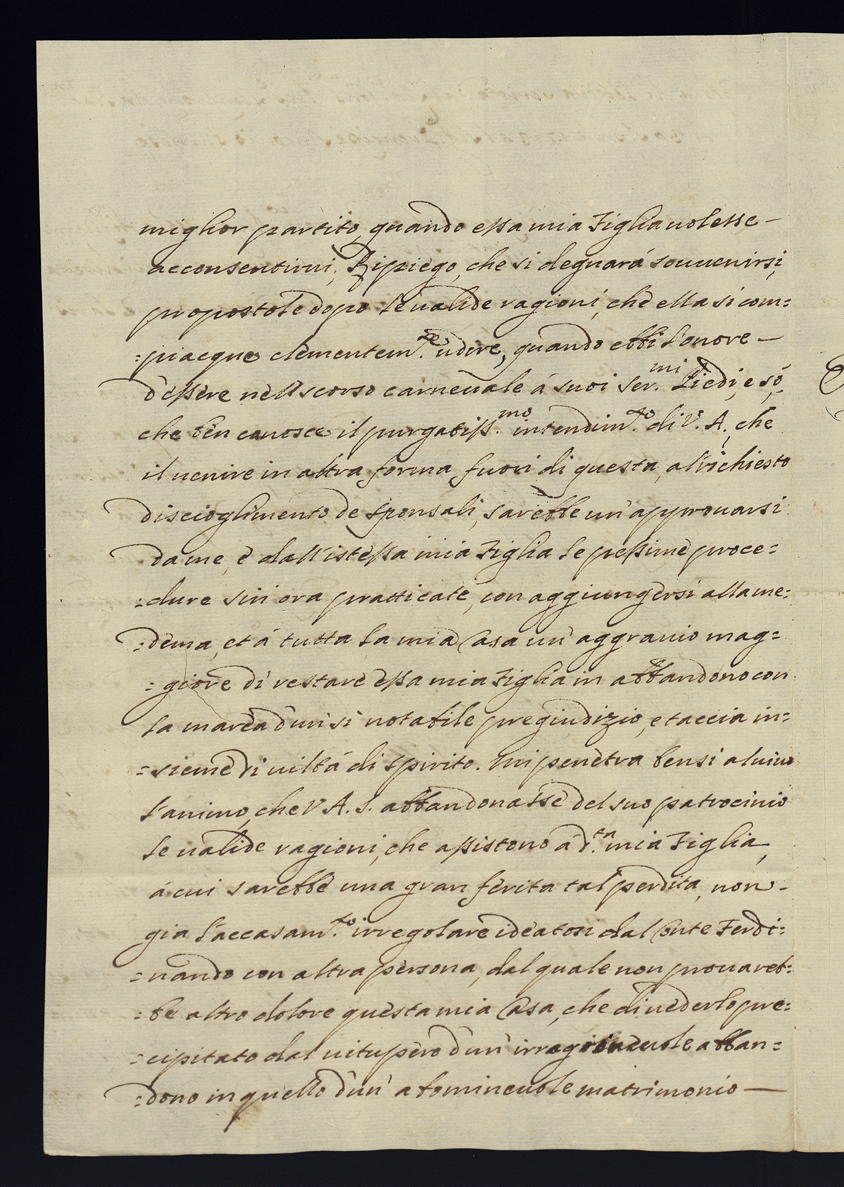 miglior partito, quando essa mia Figlia uolesse –
acconsentirui, Ripiego, che si degnará souuenirsi,
propostole dopo le ualide ragioni, che ella si com:
:piacque clementem.te udire, quando ebbi l'onore –
d'essere nello scorso carneuale á suoi Ser.mi Piedi, e só,
che ben conosce il purgatiss.mo intendim.to di V. A., che
il uenire in altra forma fuori di questa, al richiesto
discioglimento de Sponsali, sarebbe un' approuarsi
da me, è dall'istessa mia Figlia le pessime proce:
:dure sin ora pratticate, con aggiungersi alla me:
:dema, et á tutta la mia Casa un' aggrauio mag:
:giore di restare essa mia Figlia in abbandono con
la marca d'un si notabile pregiudizio, e taccia in:
:sieme di uiltá di spirito. Mi penetra bensi al uiuo
l'animo, che V. A. S. abbandonasse del suo patrocinio
le ualide ragioni, che assistono á d.ta mia Figlia,
á cui sarebbe una gran ferita tal perdita, non –
gia l'accasam.to irregolare ideatosi dal Conte Ferdi:
:nando con altra persona, dal quale non prouareb:
:be altro dolore questa mia Casa, che di uederlo pre:
:cipitato dal uitupero d'un' irragioneuole abban:
:dono in quello d'un' abomineuole matrimonio —